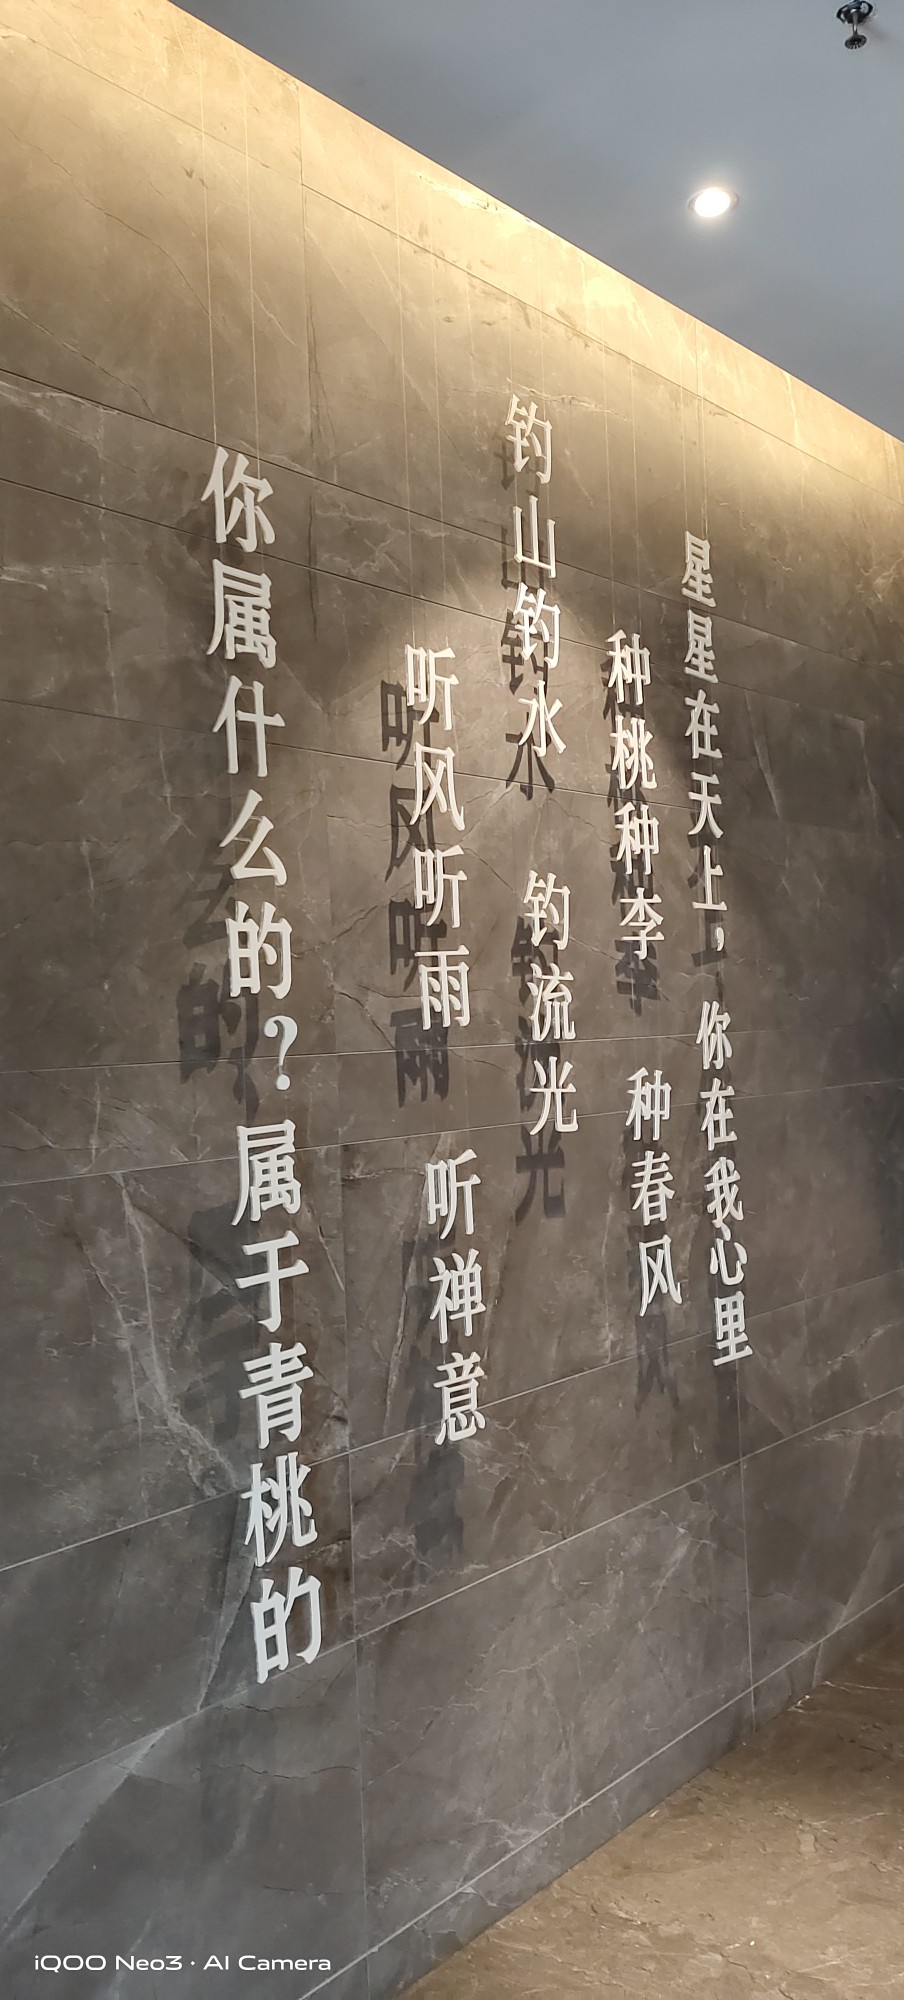 你属什么的？属于青桃的
听风听雨 听禅意
钓山钓水 钓流光
种桃种李 种春风
星星在天上，你在我心里
iQOO Neo3 · AI Camera